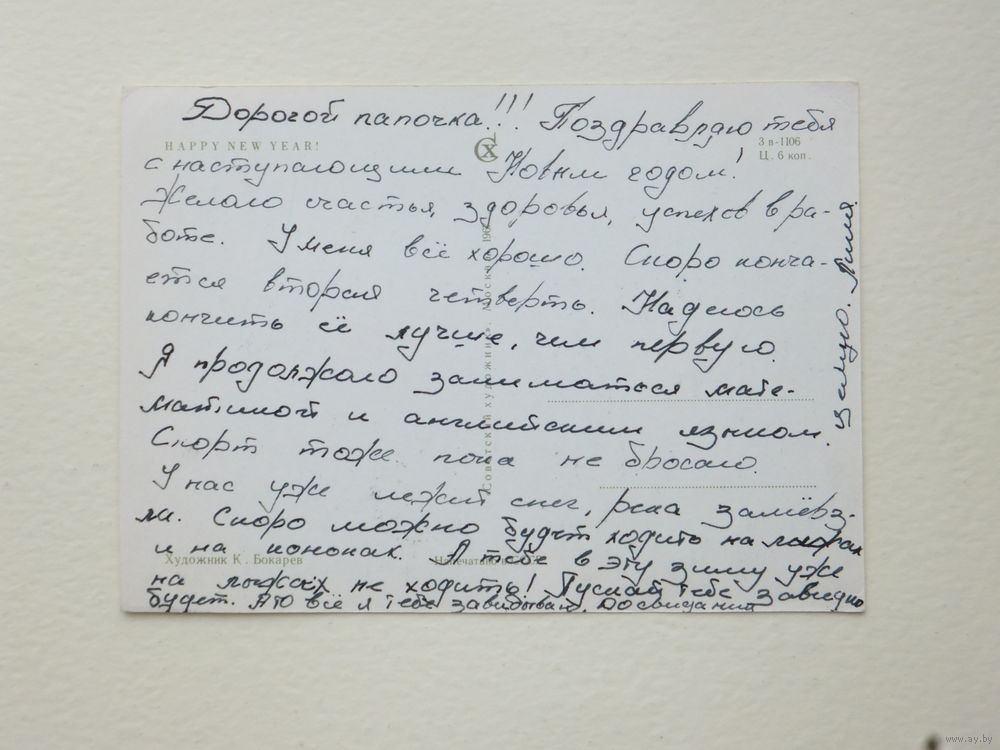 Дорогой папочка!!! Поздравляю тебя
HAPPY NEW YEAR!
СХ
3 в-1106
Ц. 6 коп.
с наступающим Новым годом!
Желаю счастья, здоровья, успехов в ра-
боте. У меня всё хорошо. Скоро конча-
ется вторая четверть. Надеюсь
кончить её лучше, чем первую.
Я продолжаю заниматься мате-
матикой и английским языком.
Спорт тоже пока не бросаю.
У нас уже лежит снег, река замёрз-
ла. Скоро можно будет ходить на лыжах
и на коньках. А тебе в эту зиму уже
Художник К. Бокарев
на лыжах не ходить! Пускай тебе завидно
будет. А то всё я тебе завидывал. Досвидания
Целую.
Советский художник. Москва 196